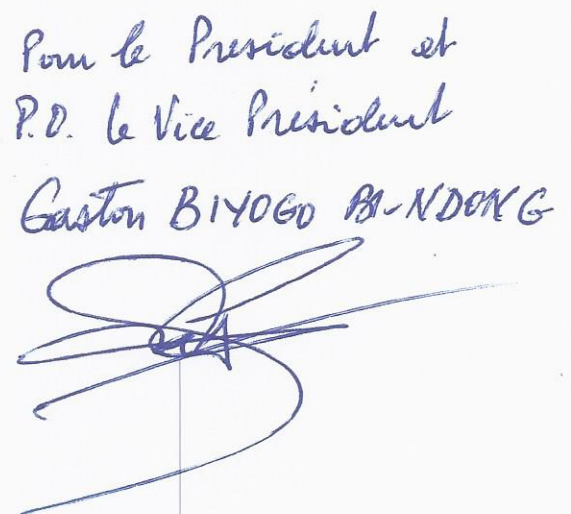 Pour le President et
P.O. le Vice Président
Gaston BIYOGO BI-NDONG